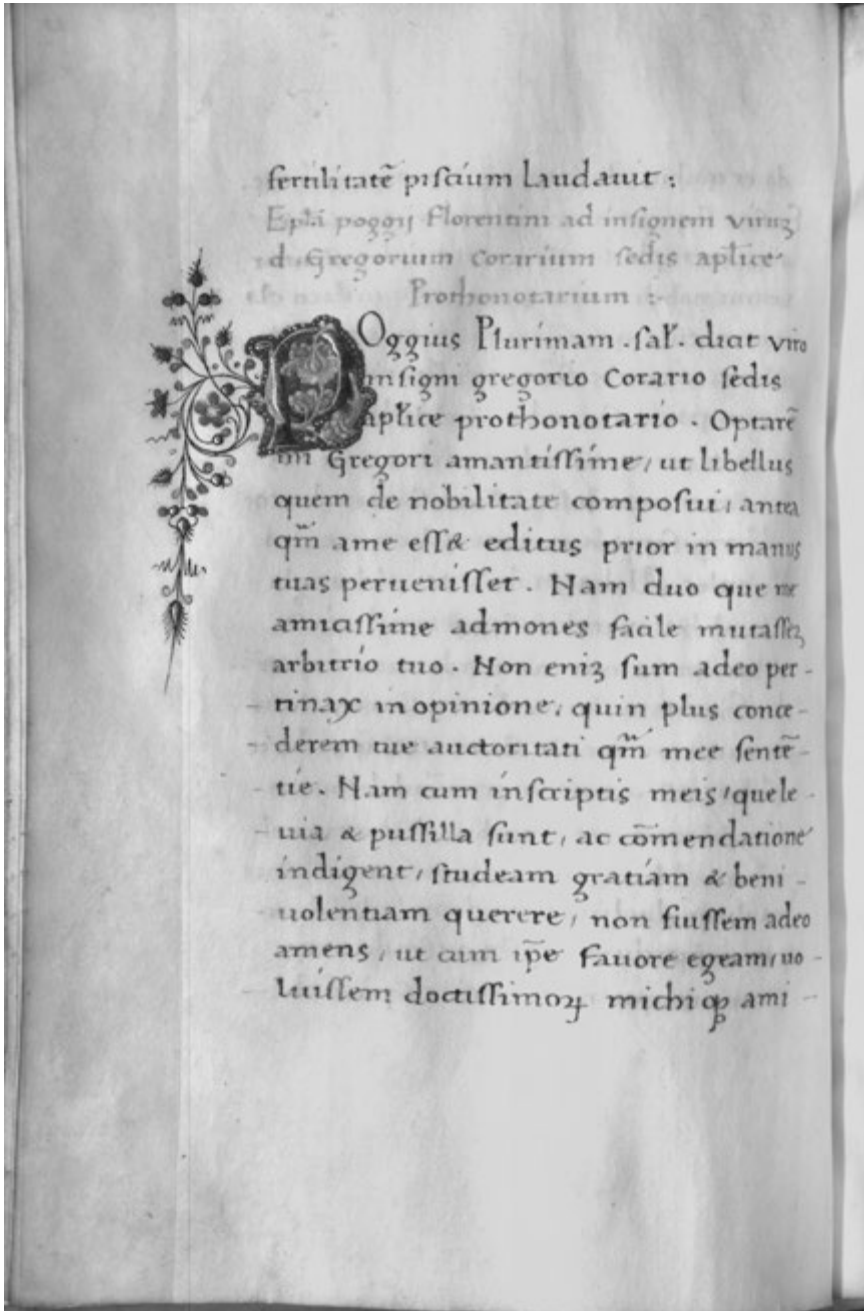 fertilitatē piscium laudauit :
Epl̄a poggij Florentini ad insignem viruꝫ
d. Gregorium Corarium sedis apl̄ice
Prothonotarium :
POggius Plurimam . sal̄ . dicit viro
insigni gregorio Corario sedis
apl̄ice prothonotario . Optarē
mi Gregori amantissime / ut libellus
quem de nobilitate composui / antea
qm̄ ame ess& editus prior in manus
tuas peruenisset . Nam duo que me
amicissime admones facile mutasseꝫ
arbitrio tuo . Non eniꝫ sum adeo per -
tinax in opinione / quin plus conce -
derem tue auctoritati qm̄ mee sentē -
tie . Nam cum inscriptis meis / que le -
uia & pussilla sunt / ac cōmendatione
indigent / studeam gratiam & beni -
uolentiam querere / non fuissem adeo
amens / ut cum ip̄e fauore egeam / uo -
luissem doctissimoꝝ michi qꝫ ami -